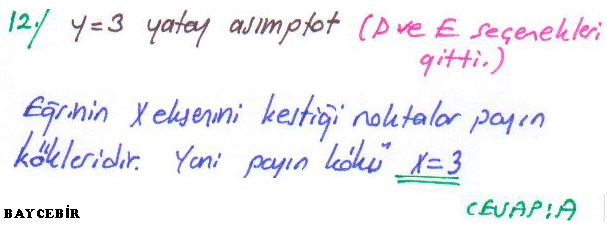 12./ y=3 yatay asimptot (D ve E seçenekleri
gitti.)
Eğrinin X eksenini kestiği noktalar payın
kökleridir. Yani payın kökü x=3
CEVAP:A
BAYCEBİR